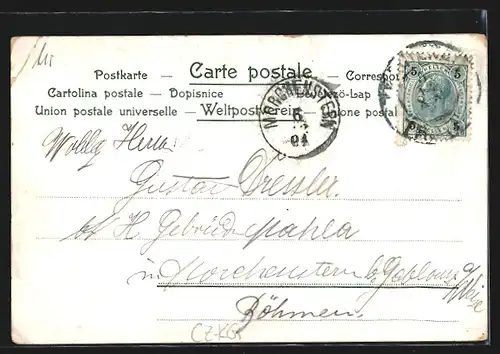 Postkarte — Carte postale — Correspon
Cartolina postale — Dopisnice — Levelező-Lap
Union postale universelle — Weltpostverein — Unione postale
MORCHENSTERN
6
01
5 5
Herrn
Gustav Dressler
bei H Gebrüder Mahla
in Morchenstern b/ Gablonz a/
Böhmen
(CZKG)